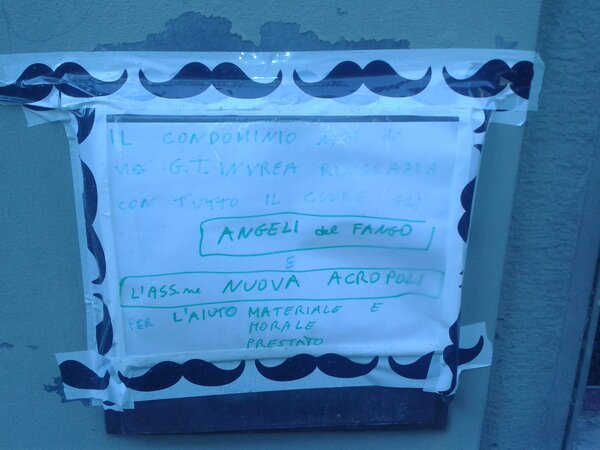 IL CONDOMINIO
VIA G.T. INVREA RINGRAZIA
CON TUTTO IL CUORE GLI
ANGELI del FANGO
E
L'ASS.ne NUOVA ACROPOLI
PER L'AIUTO MATERIALE E
MORALE
PRESTATO